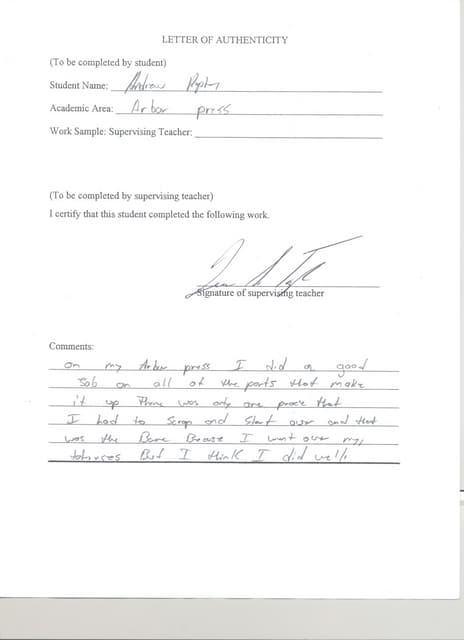 LETTER OF AUTHENTICITY
(To be completed by student)
Student Name: Andrew
Academic Area: Arbor press
Work Sample: Supervising Teacher:
(To be completed by supervising teacher)
I certify that this student completed the following work.
Signature of supervising teacher
Comments:
on my Arbor press I did a good
Job on all of the parts that make
it up There was only one that
I had to Scrap and Start over and that
was the I went over my
But I think I did well